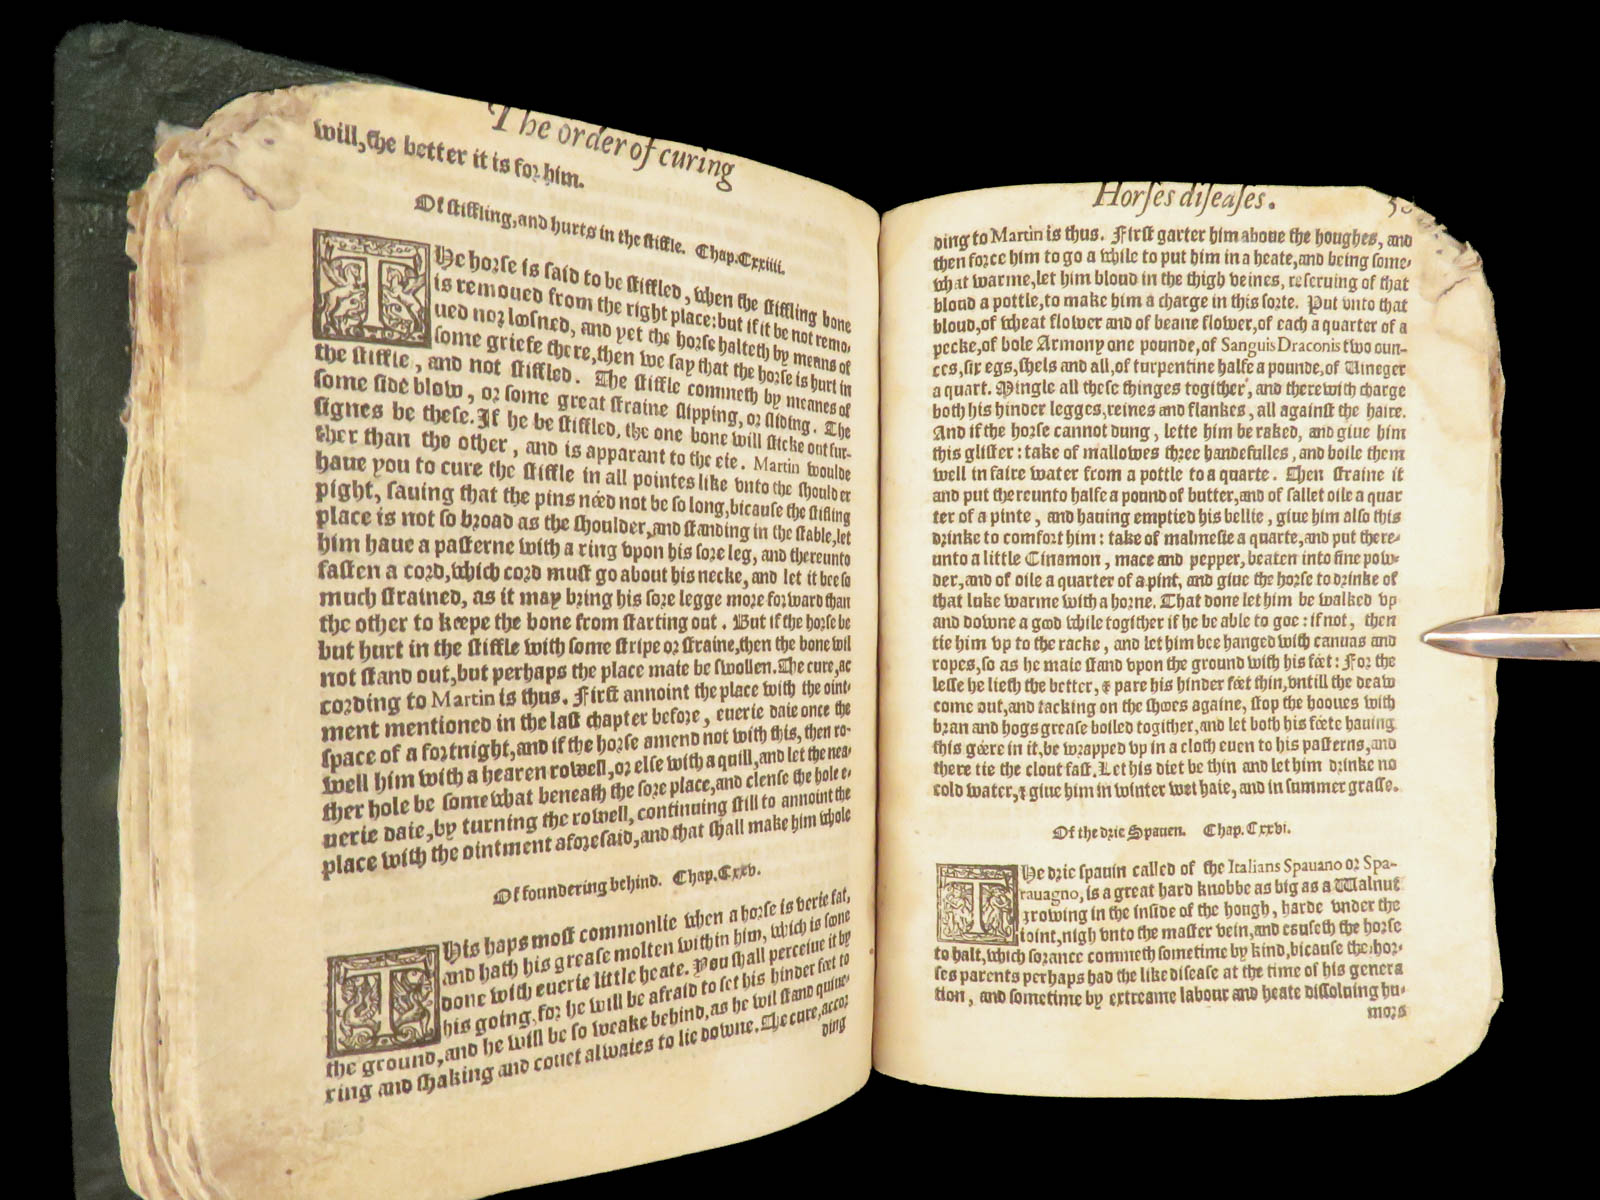 The order of curing
will, the better it is for him.
Of stiffling, and hurts in the stiffle. Chap. Cxxiiii.
THe horse is said to be stiffled, when the stiffling bone
is remoued from the right place: but if it be not remo-
ued nor loosned, and yet the horse halteth by means of
some griefe there, then we say that the horse is hurt in
the stiffle, and not stiffled. The stiffle commeth by meanes of
some side blow, or some great straine slipping, or sliding. The
signes be these. If he be stiffled, the one bone will sticke out fur-
ther than the other, and is apparant to the eie. Martin woulde
haue you to cure the stiffle in all pointes like vnto the shoulder
pight, sauing that the pins need not be so long, bicause the stifling
place is not so broad as the shoulder, and standing in the stable, let
him haue a pasterne with a ring vpon his sore leg, and thereunto
fasten a cord, which cord must go about his necke, and let it bee so
much strained, as it may bring his sore legge more forward than
the other to keepe the bone from starting out. But if the horse be
but hurt in the stiffle with some stripe or straine, then the bone wil
not stand out, but perhaps the place maie be swollen. The cure, ac
cording to Martin is thus. First annoint the place with the oint-
ment mentioned in the last chapter before, euerie daie once the
space of a fortnight, and if the horse amend not with this, then ro-
well him with a hearen rowell, or else with a quill, and let the nea-
ther hole be somewhat beneath the sore place, and clense the hole e-
uerie daie, by turning the rowell, continuing still to annoint the
place with the ointment aforesaid, and that shall make him whole
Of foundering behind. Chap. Cxxv.
THis haps most commonlie when a horse is verie fat,
and hath his grease molten within him, which is soone
done with euerie little heate. You shall perceiue it by
his going, for he will be afraid to set his hinder feet to
the ground, and he will be so weake behind, as he wil stand quiue-
ring and shaking and couet alwaies to lie downe. The cure, accor
ding
Horses diseases.
ding to Martin is thus. First garter him aboue the houghes, and
then force him to go a while to put him in a heate, and being some-
what warme, let him bloud in the thigh veines, reseruing of that
bloud a pottle, to make him a charge in this sorte. Put vnto that
bloud, of wheat flower and of beane flower, of each a quarter of a
pecke, of bole Armony one pounde, of Sanguis Draconis two oun-
ces, six egs, shels and all, of turpentine halfe a pounde, of Uineger
a quart. Mingle all these thinges togither, and therewith charge
both his hinder legges, reines and flankes, all against the haire.
And if the horse cannot dung, lette him be raked, and giue him
this glister: take of mallowes three handefulles, and boile them
well in faire water from a pottle to a quarte. Then straine it
and put thereunto halfe a pound of butter, and of sallet oile a quar
ter of a pinte, and hauing emptied his bellie, giue him also this
drinke to comfort him: take of malmesie a quarte, and put there-
unto a little Cinamon, mace and pepper, beaten into fine pow-
der, and of oile a quarter of a pint, and giue the horse to drinke of
that luke warme with a horne. That done let him be walked vp
and downe a good while togither if he be able to goe: if not, then
tie him vp to the racke, and let him bee hanged with canuas and
ropes, so as he maie stand vpon the ground with his feet: For the
lesse he lieth the better, & pare his hinder feet thin, vntill the deaw
come out, and tacking on the shooes againe, stop the hooues with
bran and hogs grease boiled togither, and let both his feete hauing
this geere in it, be wrapped vp in a cloth euen to his pasterns, and
there tie the clout fast. Let his diet be thin and let him drinke no
cold water, & giue him in winter wet haie, and in summer grasse.
Of the drie Spauen. Chap. Cxxvi.
THe drie spauin called of the Italians Spauano or Spa-
rauagno, is a great hard knobbe as big as a Walnut
growing in the inside of the hough, harde vnder the
ioint, nigh vnto the master vein, and causeth the horse
to halt, which sorance commeth sometime by kind, bicause the hor-
ses parents perhaps had the like disease at the time of his genera
tion, and sometime by extreame labour and heate dissoluing hu-
mors